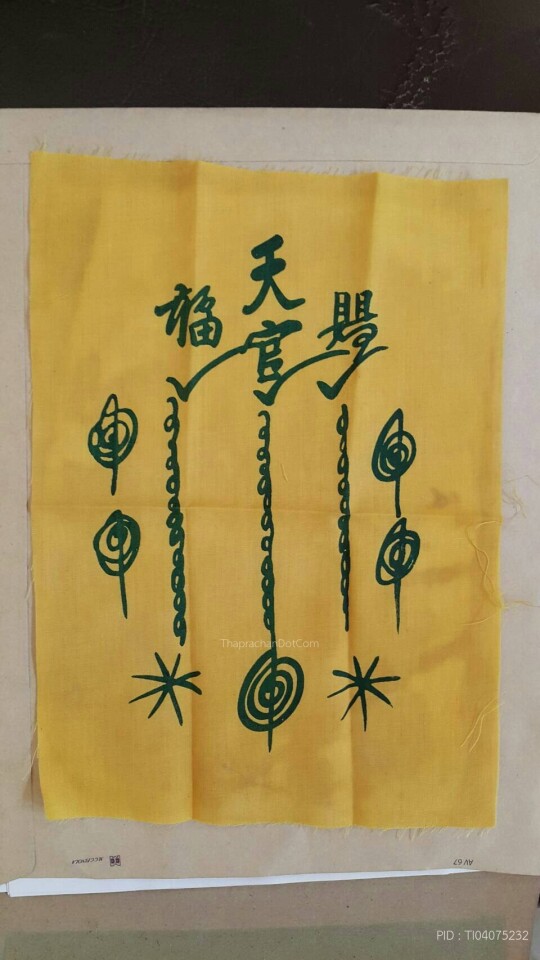 天官
福
ThaprachanDotCom
AV 67
PID : TI04075232